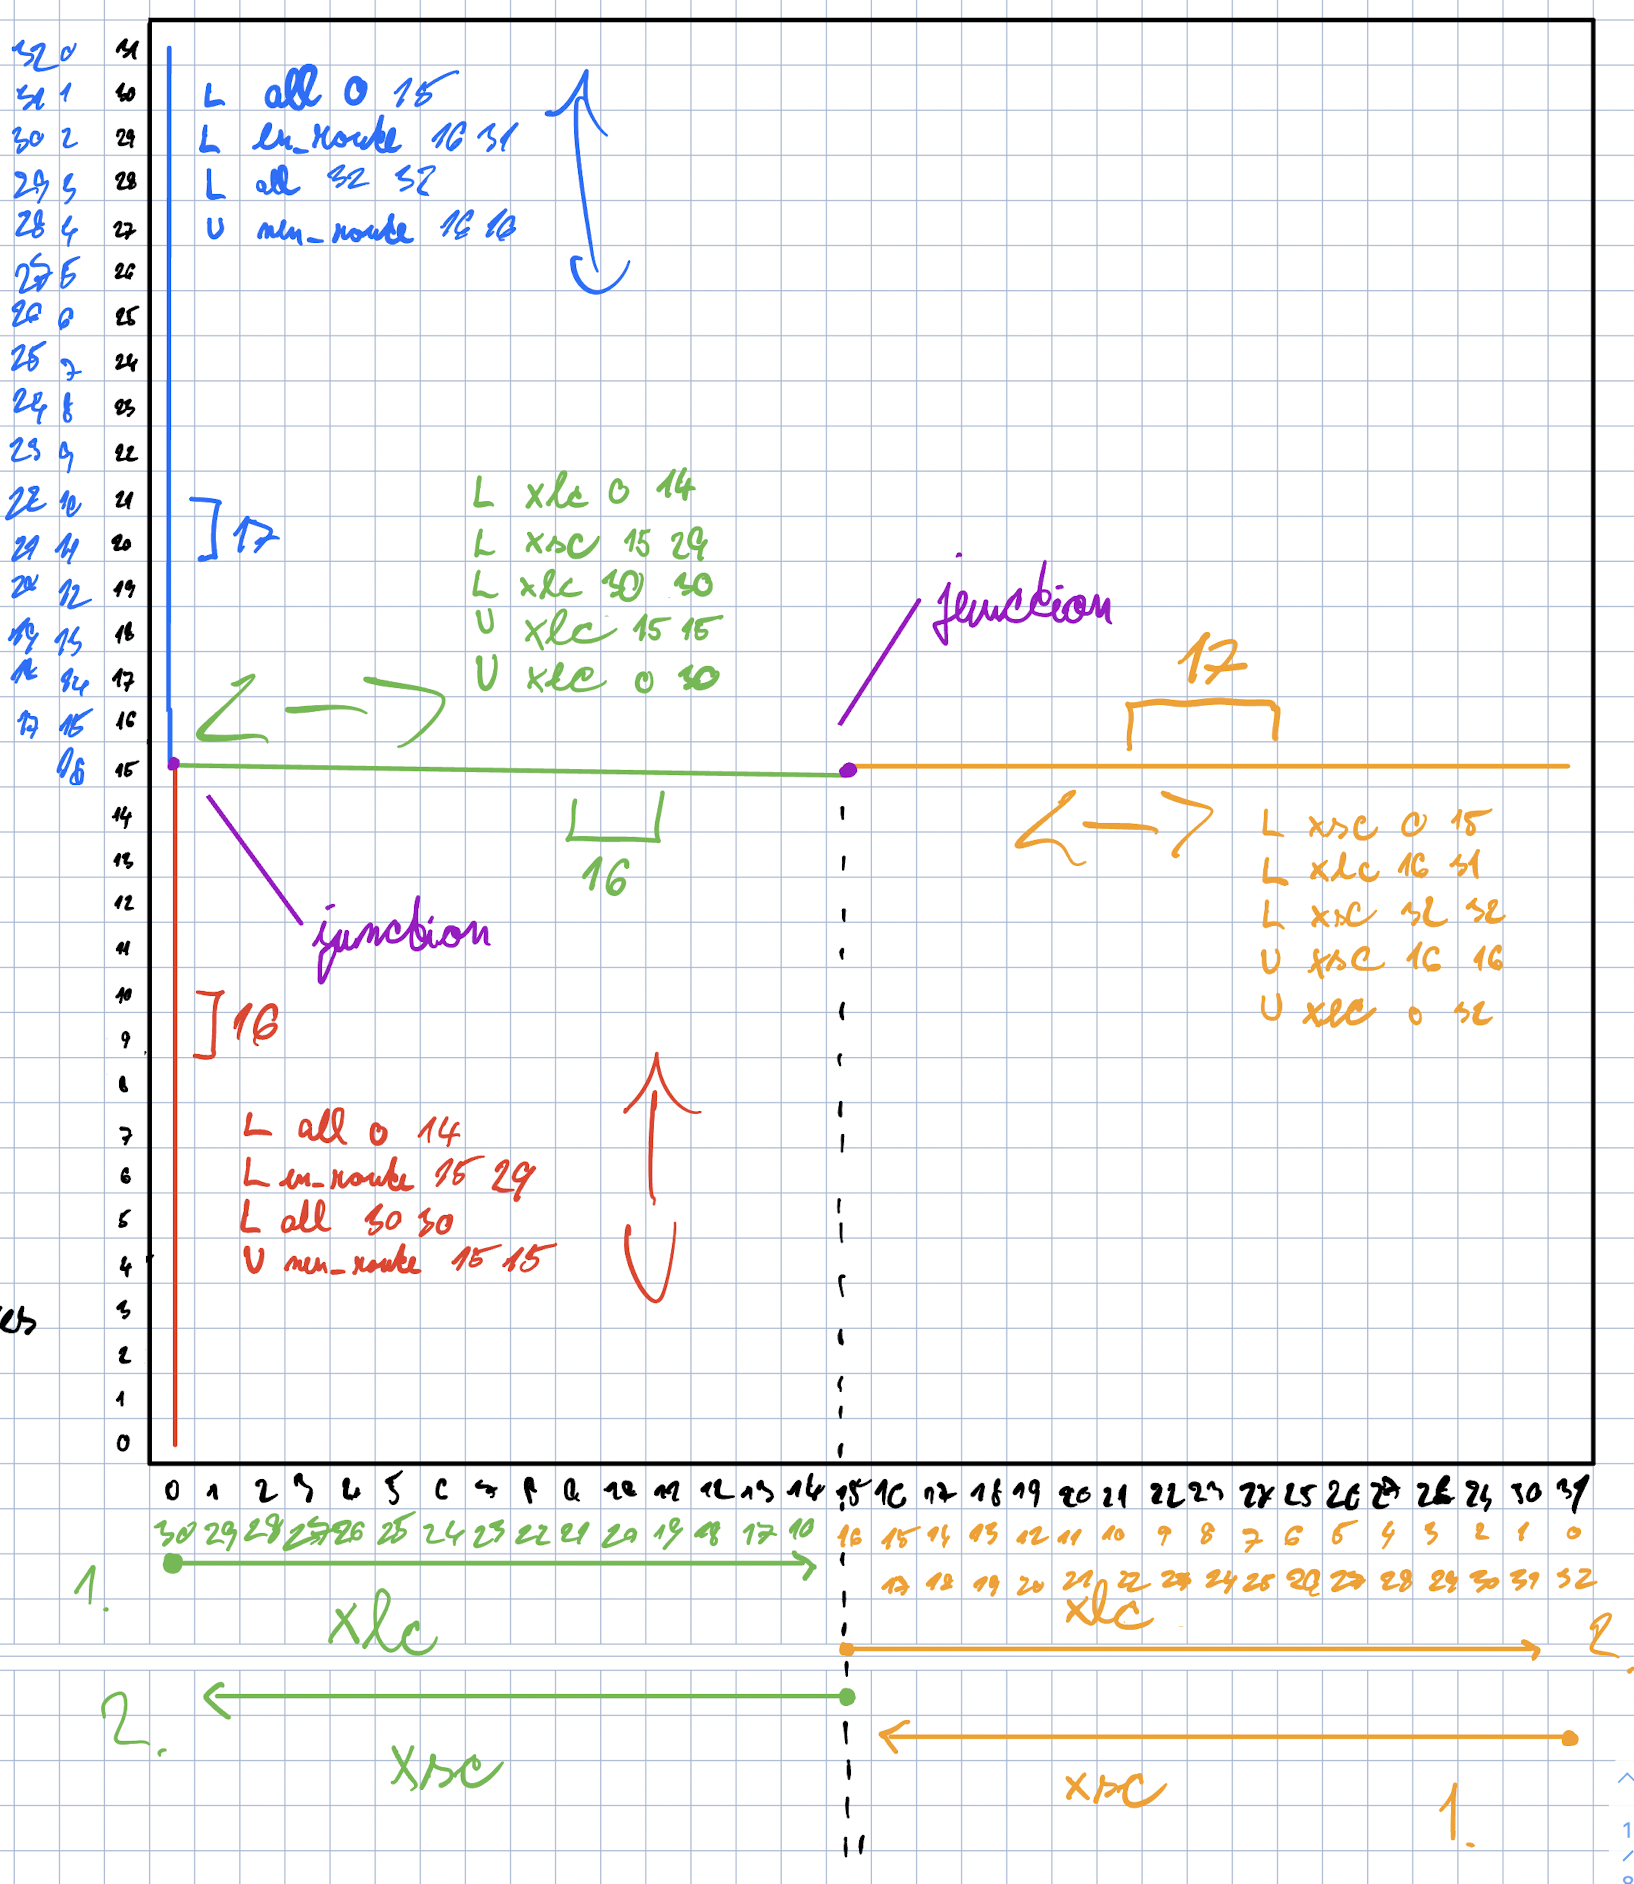 32 0 31
31 1 30
30 2 29
29 3 28
28 4 27
27 5 26
26 6 25
25 7 24
24 8 23
23 9 22
22 10 21
21 11 20
20 12 19
19 13 18
18 14 17
17 15 16
16 15
14
13
12
11
10
9
8
7
6
5
4
3
2
1
0
L all 0 15
L en_route 16 31
L all 32 32
U nen_route 16 16
17
L xlc 0 14
L xsc 15 29
L xlc 30 30
U xlc 15 15
U xlc 0 30
junction
17
16
L xsc 0 15
L xlc 16 31
L xsc 32 32
U xsc 16 16
U xlc 0 32
junction
16
L all 0 14
L en_route 15 29
L all 30 30
U nen_route 15 15
es
0 1 2 3 4 5 6 7 8 9 10 11 12 13 14 15 16 17 18 19 20 21 22 23 24 25 26 27 28 29 30 31
30 29 28 27 26 25 24 23 22 21 20 19 18 17 16 15 14 13 12 11 10 9 8 7 6 5 4 3 2 1 0
17 18 19 20 21 22 23 24 25 26 27 28 29 30 31 32
1.
xlc
xlc
2.
2.
xsc
xsc
1.